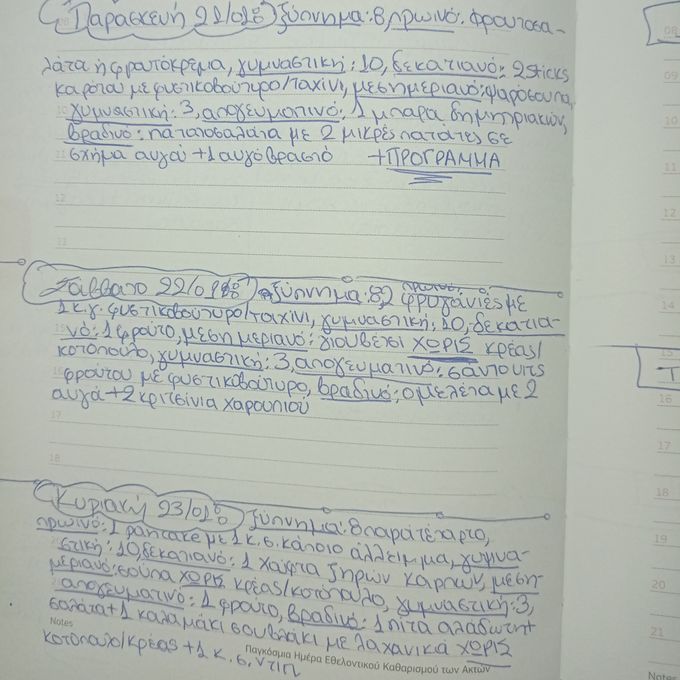 Παρασκευή 21/01: Ξύπνημα: 8, πρωινό: φρουτοσα-
λάτα ή φρουτόκρεμα, γυμναστική: 10, δεκατιανό: 2 sticks
καρότου με φυστικοβούτυρο/ταχίνι, μεσημεριανό: ψαρόσουπα,
γυμναστική: 3, απογευματινό: 1 μπάρα δημητριακών,
βραδινό: πατατοσαλάτα με 2 μικρές πατάτες σε
σχήμα αυγού + 1 αυγό βραστό +ΠΡΟΓΡΑΜΜΑ
Σάββατο 22/01: Ξύπνημα: 8, πρωινό: 2 φρυγανιές με
1 κ.γ. φυστικοβούτυρο/ταχίνι, γυμναστική: 10, δεκατια-
νό: 1 φρούτο, μεσημεριανό: γιουβέτσι ΧΩΡΙΣ κρέας/
κοτόπουλο, γυμναστική: 3, απογευματινό: σάντουιτς
φρούτου με φυστικοβούτυρο, βραδινό: ομελέτα με 2
αυγά + 2 κριτσίνια χαρουπιού
Κυριακή 23/01: Ξύπνημα: 8 παρά τέταρτο,
πρωινό: 1 pancake με 1 κ.σ. κάποιο άλλειμμα, γυμνα-
στική: 10, δεκατιανό: 1 χούφτα ξηρών καρπών, μεση-
μεριανό: σούπα ΧΩΡΙΣ κρέας/κοτόπουλο, γυμναστική: 3,
απογευματινό: 1 φρούτο, βραδινό: 1 πίτα αλάδωτη +
σαλάτα + 1 καλαμάκι σουβλάκι με λαχανικά ΧΩΡΙΣ
κοτόπουλο/κρέας + 1 κ.σ. ντιπ
Notes
Παγκόσμια Ημέρα Εθελοντικού Καθαρισμού των Ακτών
10
11
12
13
17
18
08
09
10
11
12
13
14
15
Τ
16
17
18
19
20
21
Notes